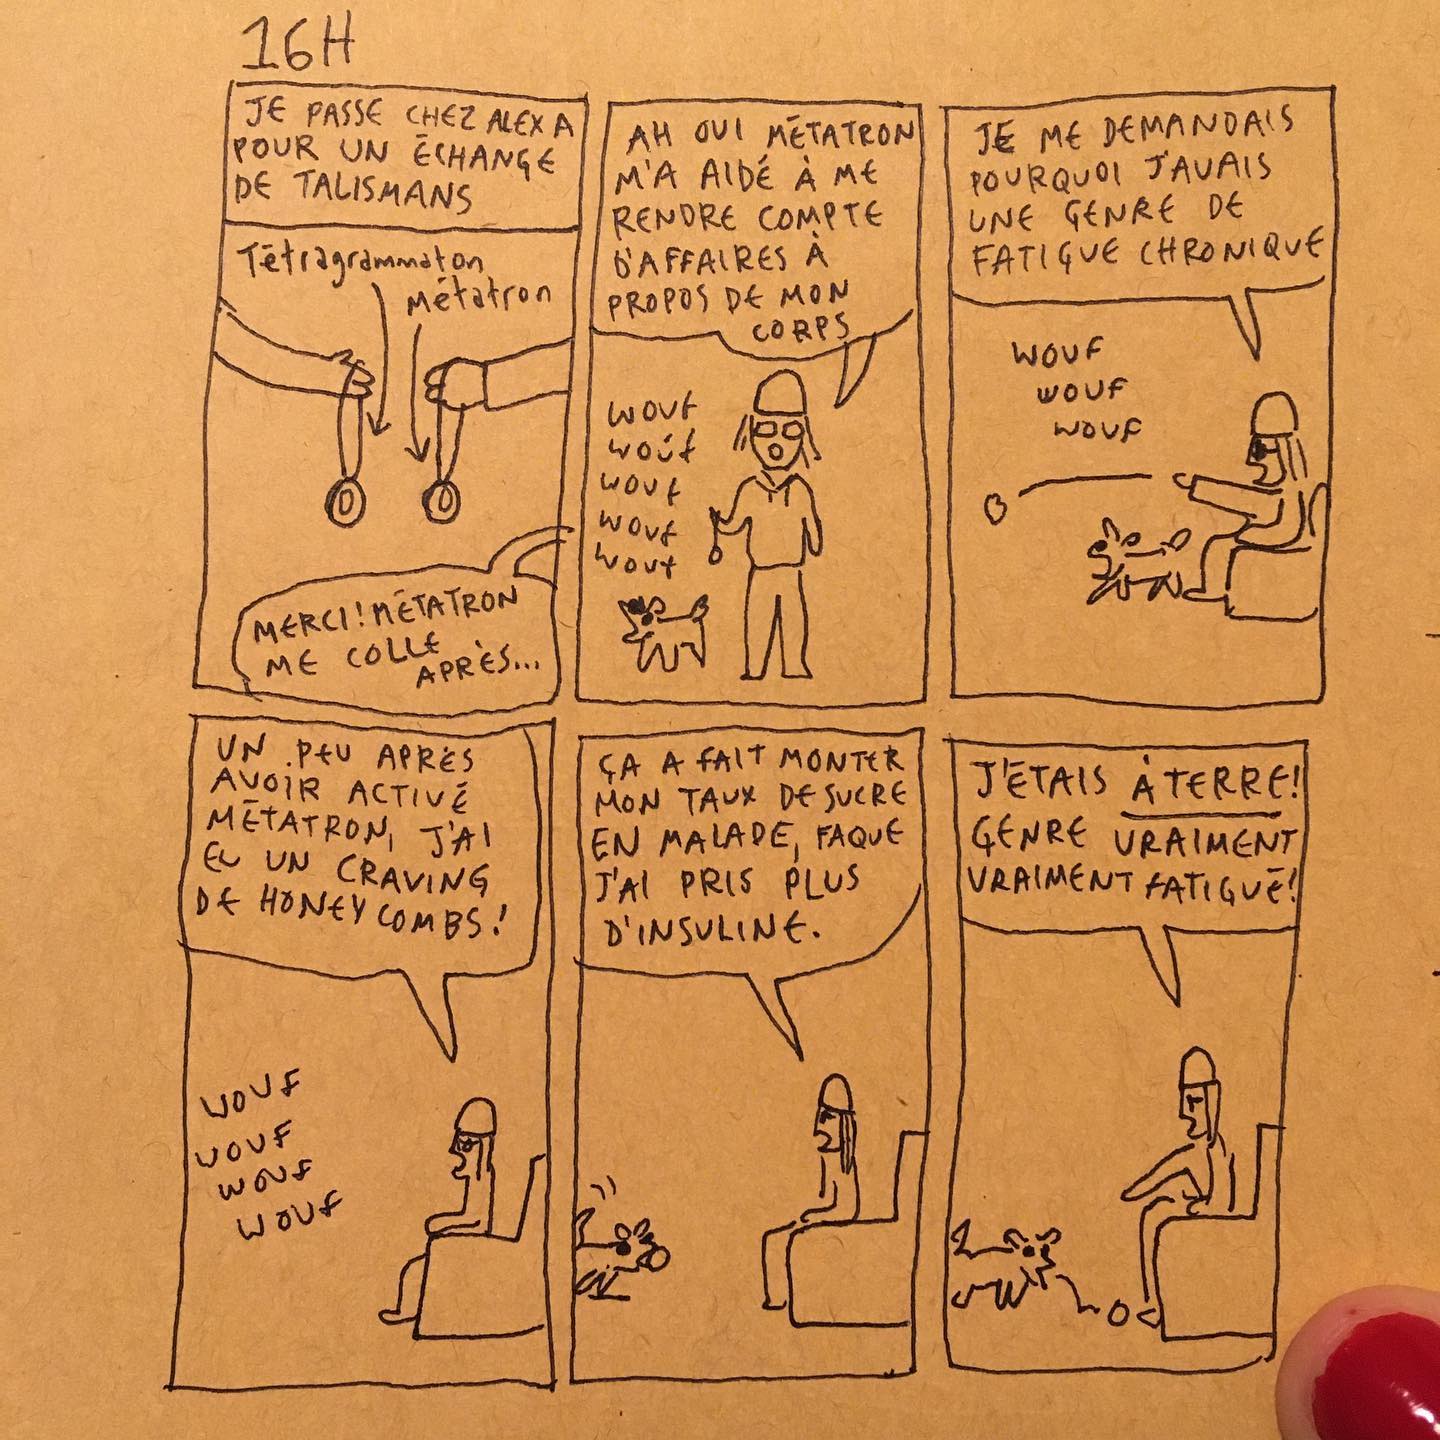 16H
JE PASSE CHEZ ALEX A
POUR UN ÉCHANGE
DE TALISMANS
Tétragrammaton
Métatron
MERCI! MÉTATRON
ME COLLE
APRÈS...
AH OUI MÉTATRON
M'A AIDÉ À ME
RENDRE COMPTE
D'AFFAIRES À
PROPOS DE MON
CORPS
WOUF
WOUF
WOUF
WOUF
WOUF
JE ME DEMANDAIS
POURQUOI J'AVAIS
UNE GENRE DE
FATIGUE CHRONIQUE
WOUF
WOUF
WOUF
UN PEU APRÈS
AVOIR ACTIVÉ
MÉTATRON, J'AI
EU UN CRAVING
DE HONEY COMBS!
WOUF
WOUF
WOUF
WOUF
ÇA A FAIT MONTER
MON TAUX DE SUCRE
EN MALADE, FAQUE
J'AI PRIS PLUS
D'INSULINE.
J'ÉTAIS À TERRE!
GENRE VRAIMENT
VRAIMENT FATIGUÉ!